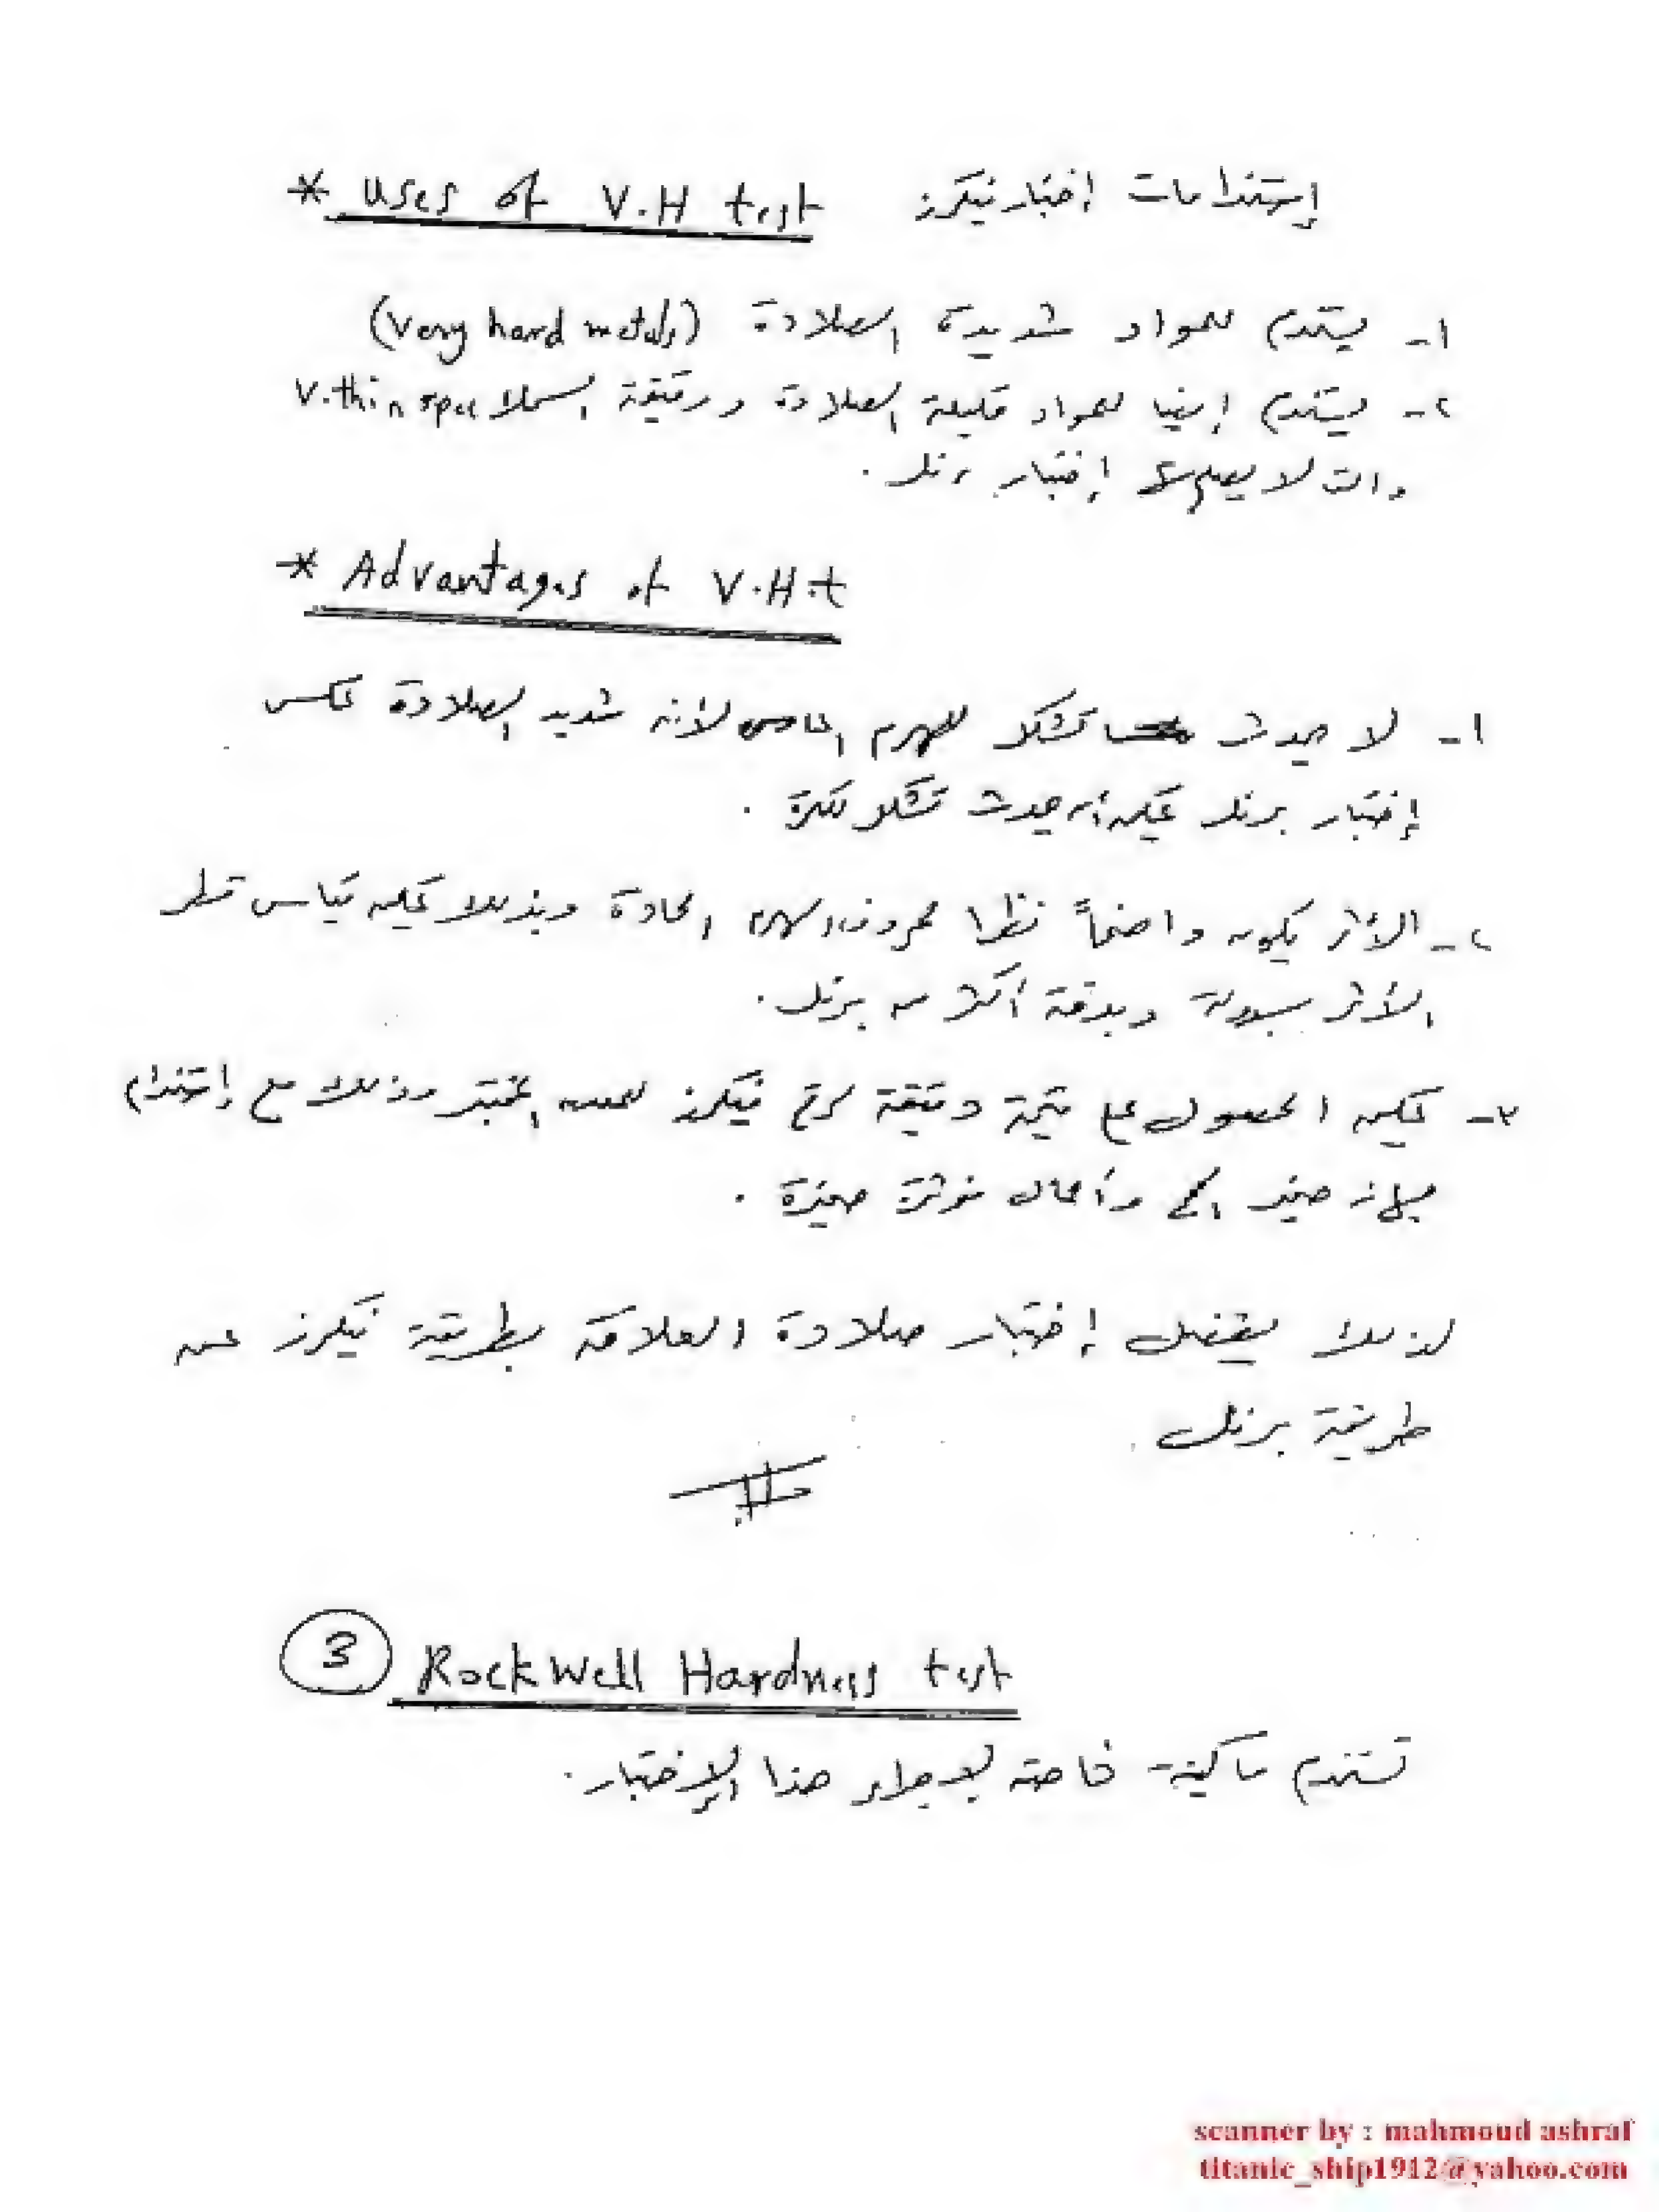 * Uses of V.H test إستخدامات إختبار فيكرز
١- يستخدم للمواد شديدة الصلادة (Very hard metals)
٢- يستخدم أيضا للمواد قليلة الصلادة ورقيقة السمك V.thin spec
والتى لا يصلح لها إختبار برنل .
* Advantages of V.H.t
١- لا يحدث تشكل للهرم الماسى لأنه شديد الصلادة عكس
إختبار برنل يمكن أن يحدث تشكل للكرة .
٢- الأثر يكون واضحاً نظرا لحروف الهرم الحادة وبذلك يمكن قياس قطر
الأثر بسهولة وبدقة أكثر من برنل .
٣- يمكن الحصول على قيمة دقيقة لرقم فيكرز للمعدن المختبر وذلك مع إستخدام
جهاز صغير الحجم وأحمال مؤثرة صغيرة .
لذلك يفضل إختبار صلادة العلامة بطريقة فيكرز عن
طريقة برنل .
3 Rockwell Hardness test
تستخدم ماكينة خاصة لإجراء هذا الإختبار .
scanner by : mahmoud ashraf
titanic_ship1912@yahoo.com